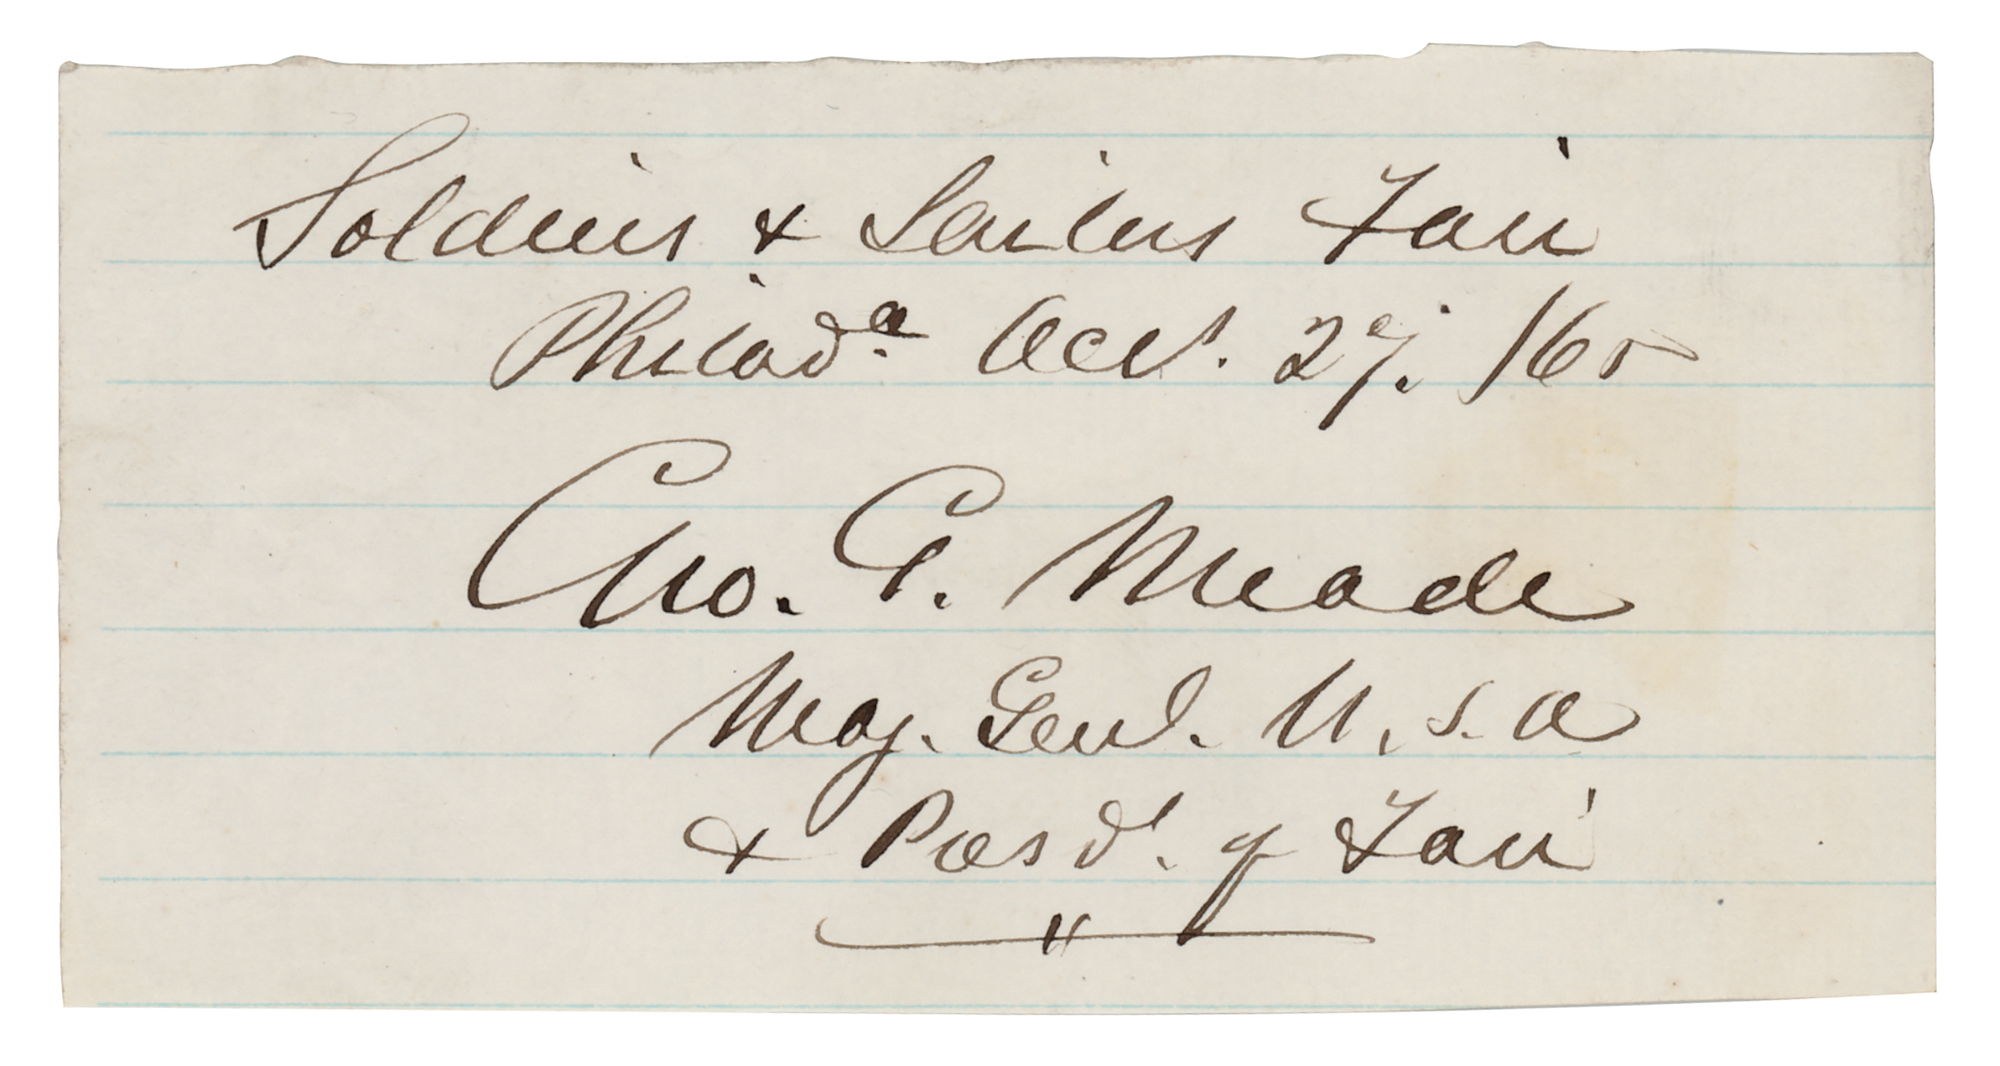 Soldiers & Sailors Fair
Philada. Oct. 27. /65
Geo. G. Meade
Maj. Genl. U.S.A
& Presdt. of Fair